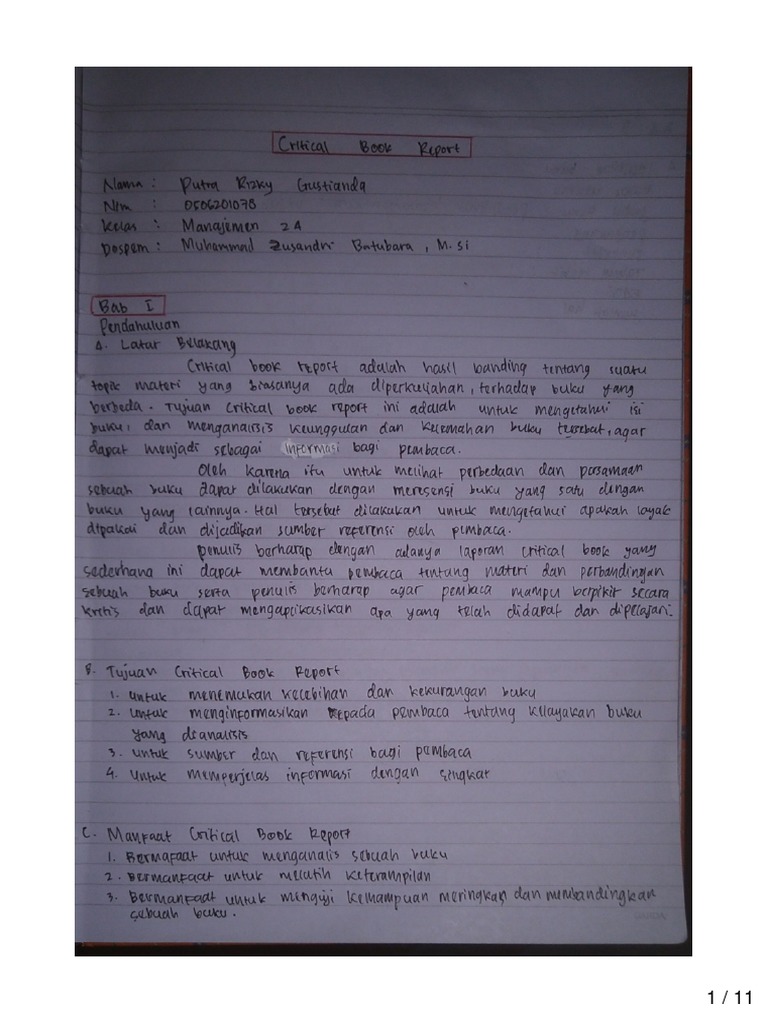 Critical Book Report
Nama : Putra Rizky Gustianda
Nim : 0506201078
Kelas : Manajemen 2A
Dospem : Muhammad Zusandri Batubara, M.si
Bab I
Pendahuluan
A. Latar Belakang
Critical book report adalah hasil banding tentang suatu
topik materi yang biasanya ada diperkuliahan, terhadap buku yang
berbeda. Tujuan Critical book report ini adalah untuk mengetahui isi
buku, dan menganalisis keunggulan dan kelemahan buku tersebut, agar
dapat menjadi sebagai informasi bagi pembaca.
Oleh karena itu untuk melihat perbedaan dan persamaan
sebuah buku dapat dilakukan dengan meresensi buku yang satu dengan
buku yang lainnya. Hal tersebut dilakukan untuk mengetahui apakah layak
dipakai dan dijadikan sumber referensi oleh pembaca.
penulis berharap dengan adanya laporan critical book yang
sederhana ini dapat membantu pembaca tentang materi dan perbandingan
sebuah buku serta penulis berharap agar pembaca mampu berpikir secara
kritis dan dapat mengaplikasikan apa yang telah didapat dan dipelajari.
B. Tujuan Critical Book Report
1. untuk menemukan kelebihan dan kekurangan buku
2. Untuk menginformasikan kepada pembaca tentang kelayakan buku
yang dianalisis
3. untuk sumber dan referensi bagi pembaca
4. Untuk memperjelas informasi dengan singkat
C. Manfaat Critical Book Report
1. Bermafaat untuk menganalis sebuah buku
2. Bermanfaat untuk melatih keterampilan
3. Bermanfaat untuk menguji kemampuan meringkan dan membandingkan
sebuah buku.
1 / 11